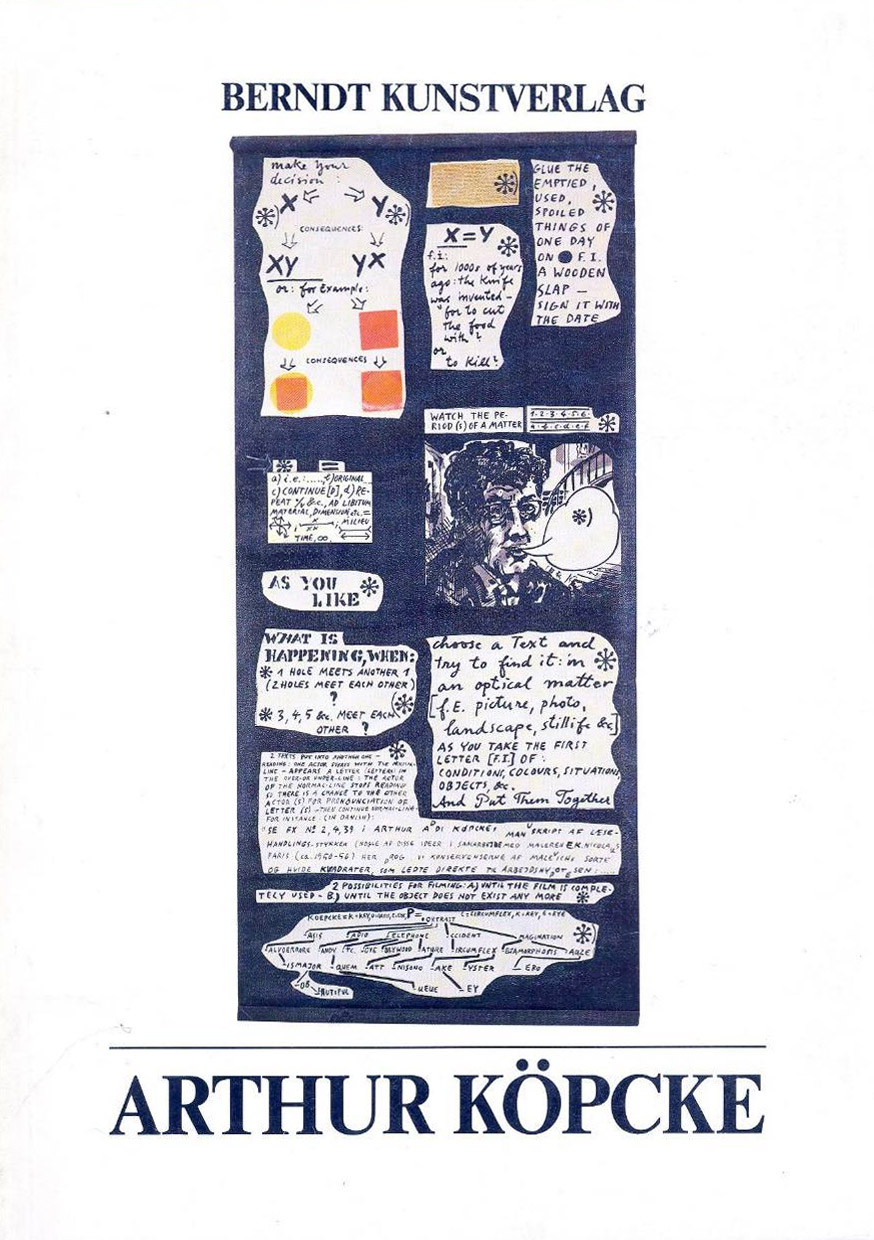 BERNDT KUNSTVERLAG
make your
decision:
X Y
CONSEQUENCES:
XY YX
or: for Example:
CONSEQUENCES
GLUE THE
EMPTIED,
USED,
SPOILED
THINGS OF
ONE DAY
ON ● F.I.
A WOODEN
SLAP —
SIGN IT WITH
THE DATE
X=Y
f.i:
for 1000s of years
ago: the Knife
was invented-
for to cut
the food
with?
or
to Kill?
WATCH THE PE-
RIOD(S) OF A MATTER
1·2·3·4·5·6·
a·b·c·d·e·f
*)
=
a) i.e.:....., b) ORIGINAL
c) CONTINUE [D], d) RE-
PEAT &c., AD LIBITUM
MATERIAL, DIMENSION etc. =
MILIEU
TIME, ∞.
AS YOU
LIKE
WHAT IS
HAPPENING, WHEN:
1 HOLE MEETS ANOTHER 1
(2 HOLES MEET EACH OTHER)
?
3, 4, 5 &c. MEET EACH
OTHER ?
choose a Text and
try to find it: in
an optical matter
[f.E. picture, photo,
landscape, stillife &c]
AS YOU TAKE THE FIRST
LETTER [F.I] OF:
CONDITIONS, COLOURS, SITUATION,
OBJECTS, &c.
And Put Them Together
2 TEXTS PUT INTO ANOTHER ONE -
READING: ONE ACTOR STARTS WITH THE NORMAL-
LINE - APPEARS A LETTER (LETTERS) IN
THE OVER-OR UNDER-LINE: THE ACTOR
OF THE NORMAL-LINE STOPS READING
SO THERE IS A CHANCE TO THE OTHER
ACTOR (S) FOR PRONOUNCIATION OF
LETTER (S) - THEN CONTINUE NORMAL-LINE-
FOR INSTANCE: (IN DANISH):
SE FX Nº 2, 4, 39 i ARTHUR KØPCKES MANUSKRIPT AF LÆSE-
HANDLINGS-STYKKER (NOGLE AF DISSE IDEER I SAMARBEJDE MED MALEREN E.K. NICOLA
PARIS (ca. 1950-56) HER
OG HVIDE KVADRATER, SOM LEDTE DIREKTE TIL ARBEJDSHYPOTESEN:
2 POSSIBILITIES FOR FILMING: A) UNTIL THE FILM IS COMPLE-
TELY USED - B) UNTIL THE OBJECT DOES NOT EXIST ANY MORE
P= PORTRAIT
C=CIRCUMFLEX, K=KEY, E=EYE
RADIO TELEPHONE ACCIDENT IMAGINATION
ETC. HAYWOOD NATURE CIRCUMFLEX METAMORPHOSIS
ISMAJOR
OYSTER
QUEUE KEY
ARTHUR KÖPCKE